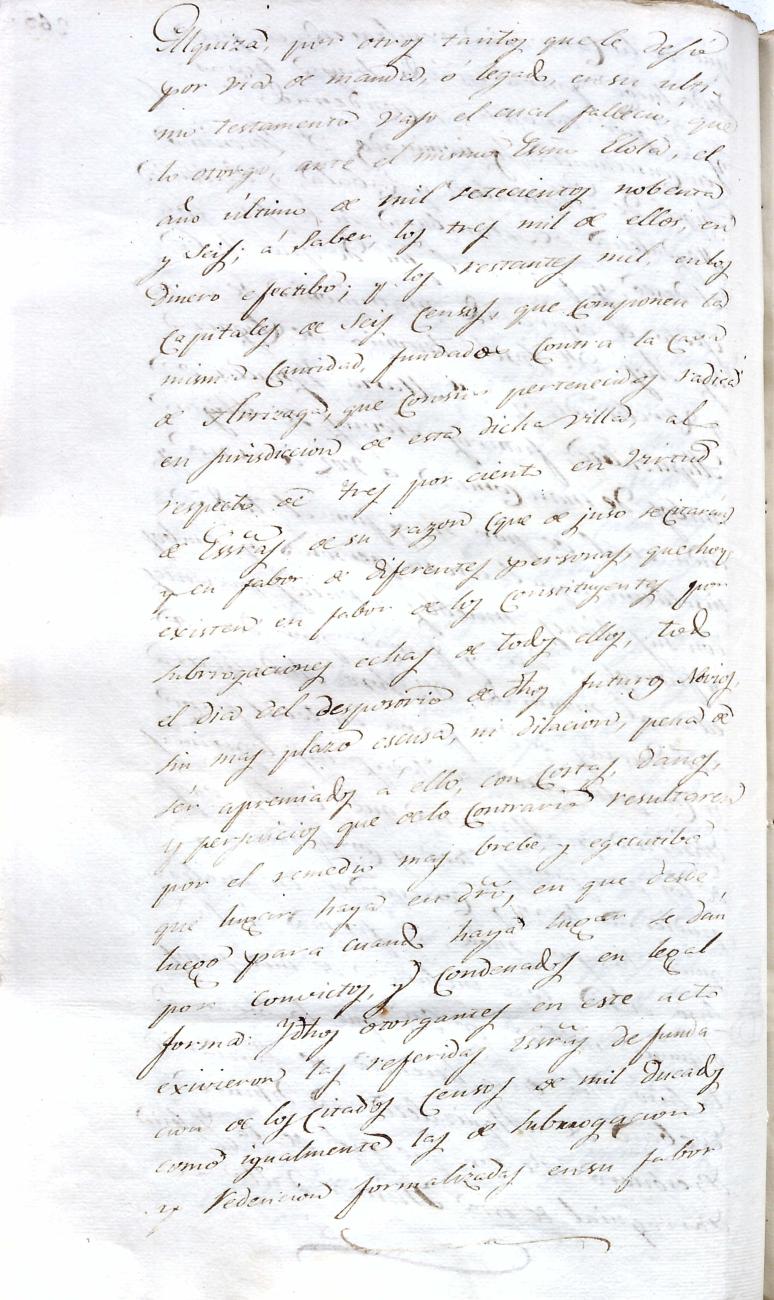 Alquiza, por otros tantos que le dejó
por via de manda, ó legado, en su ulti-
mo testamento vajo el cual fallecio, que
lo otorgó, ante el mismo Essno Elola, el
año último de mil setecientos nobenta
y seis; á saber los tres mil de ellos, en
dinero efectibo; y los restantes mil, en los
Capitales de seis Censos, que componen la
misma Cantidad, fundados contra la Casa
de Arrizaga, que con sus pertenecidos radica
en jurisdiccion de esta dicha villa, al
respecto de tres por ciento en virtud
de Essrãs de su razon (que de juso se citaran)
y en fabor de diferentes personas, que hoy
existen en fabor de los Constituyentes por
subrrogaciones echas de todos ellos, todo
el dia del desposorio de dhos futuros Novios,
sin mas plazo escusa, ni dilacion, pena de
sér apremiados á ello, con Costas, daños,
y perjuicios que delo contrario resultaren
por el remedio mas brebe, y egecutibo
que lugar haya en drõ, en que desde
luego para cuando haya lugar se dán
por convictos, y Condenados en legal
forma: Y dhos otorgantes en este acto
exivieron las referidas Essrãs de funda-
cion de los citados Censos de mil ducados
como igualmente las de subrrogacion
y redencion formalizadas en su fabor